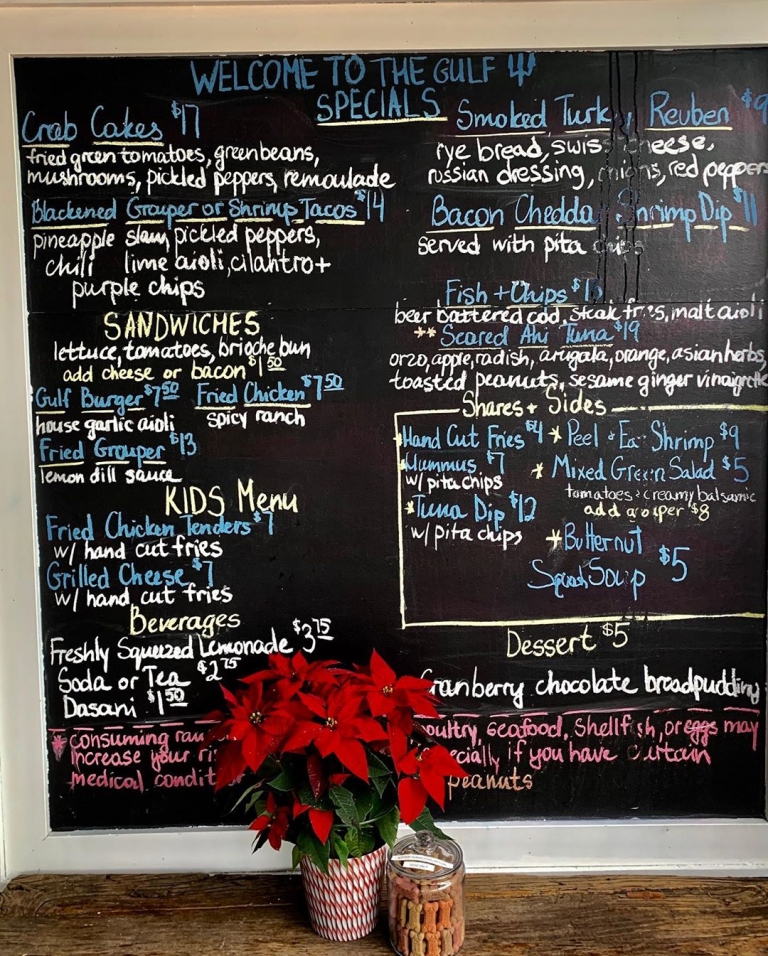 WELCOME TO THE GULF
SPECIALS
Crab Cakes $17
fried green tomatoes, greenbeans,
mushrooms, pickled peppers, remoulade
Blackened Grouper or Shrimp Tacos $14
pineapple slaw, pickled peppers,
chili lime aioli, cilantro +
purple chips
SANDWICHES
lettuce, tomatoes, brioche bun
add cheese or bacon $1 50
Gulf Burger $7 50
house garlic aioli
Fried Chicken $7 50
spicy ranch
Fried Grouper $13
lemon dill sauce
KIDS Menu
Fried Chicken Tenders $7
w/ hand cut fries
Grilled Cheese $7
w/ hand cut fries
Beverages
Freshly Squeezed Lemonade $3 75
Soda or Tea $2 75
Dasani $1 50
Smoked Turk Reuben $9
rye bread, swiss cheese,
russian dressing, red peppers
Bacon Chedda Shrimp Dip $11
served with pita chips
Fish + Chips
beer battered cod, steak fries, malt aioli
** Seared Ahi Tuna $19
orzo, apple, radish, arugala, orange, asian herbs,
toasted peanuts, sesame ginger vinaigrette
Shares + Sides
*Hand Cut Fries $4
*Hummus $7
w/ pita chips
*Tuna Dip $12
w/ pita chips
* Peel & Eat Shrimp $9
* Mixed Green Salad $5
tomatoes & creamy balsamic
add grouper $8
*Butternut
Squash Soup $5
Dessert $5
Cranberry chocolate breadpudding
* consuming raw poultry, seafood, Shellfish, or eggs may
increase your especially if you have certain
medical peanuts